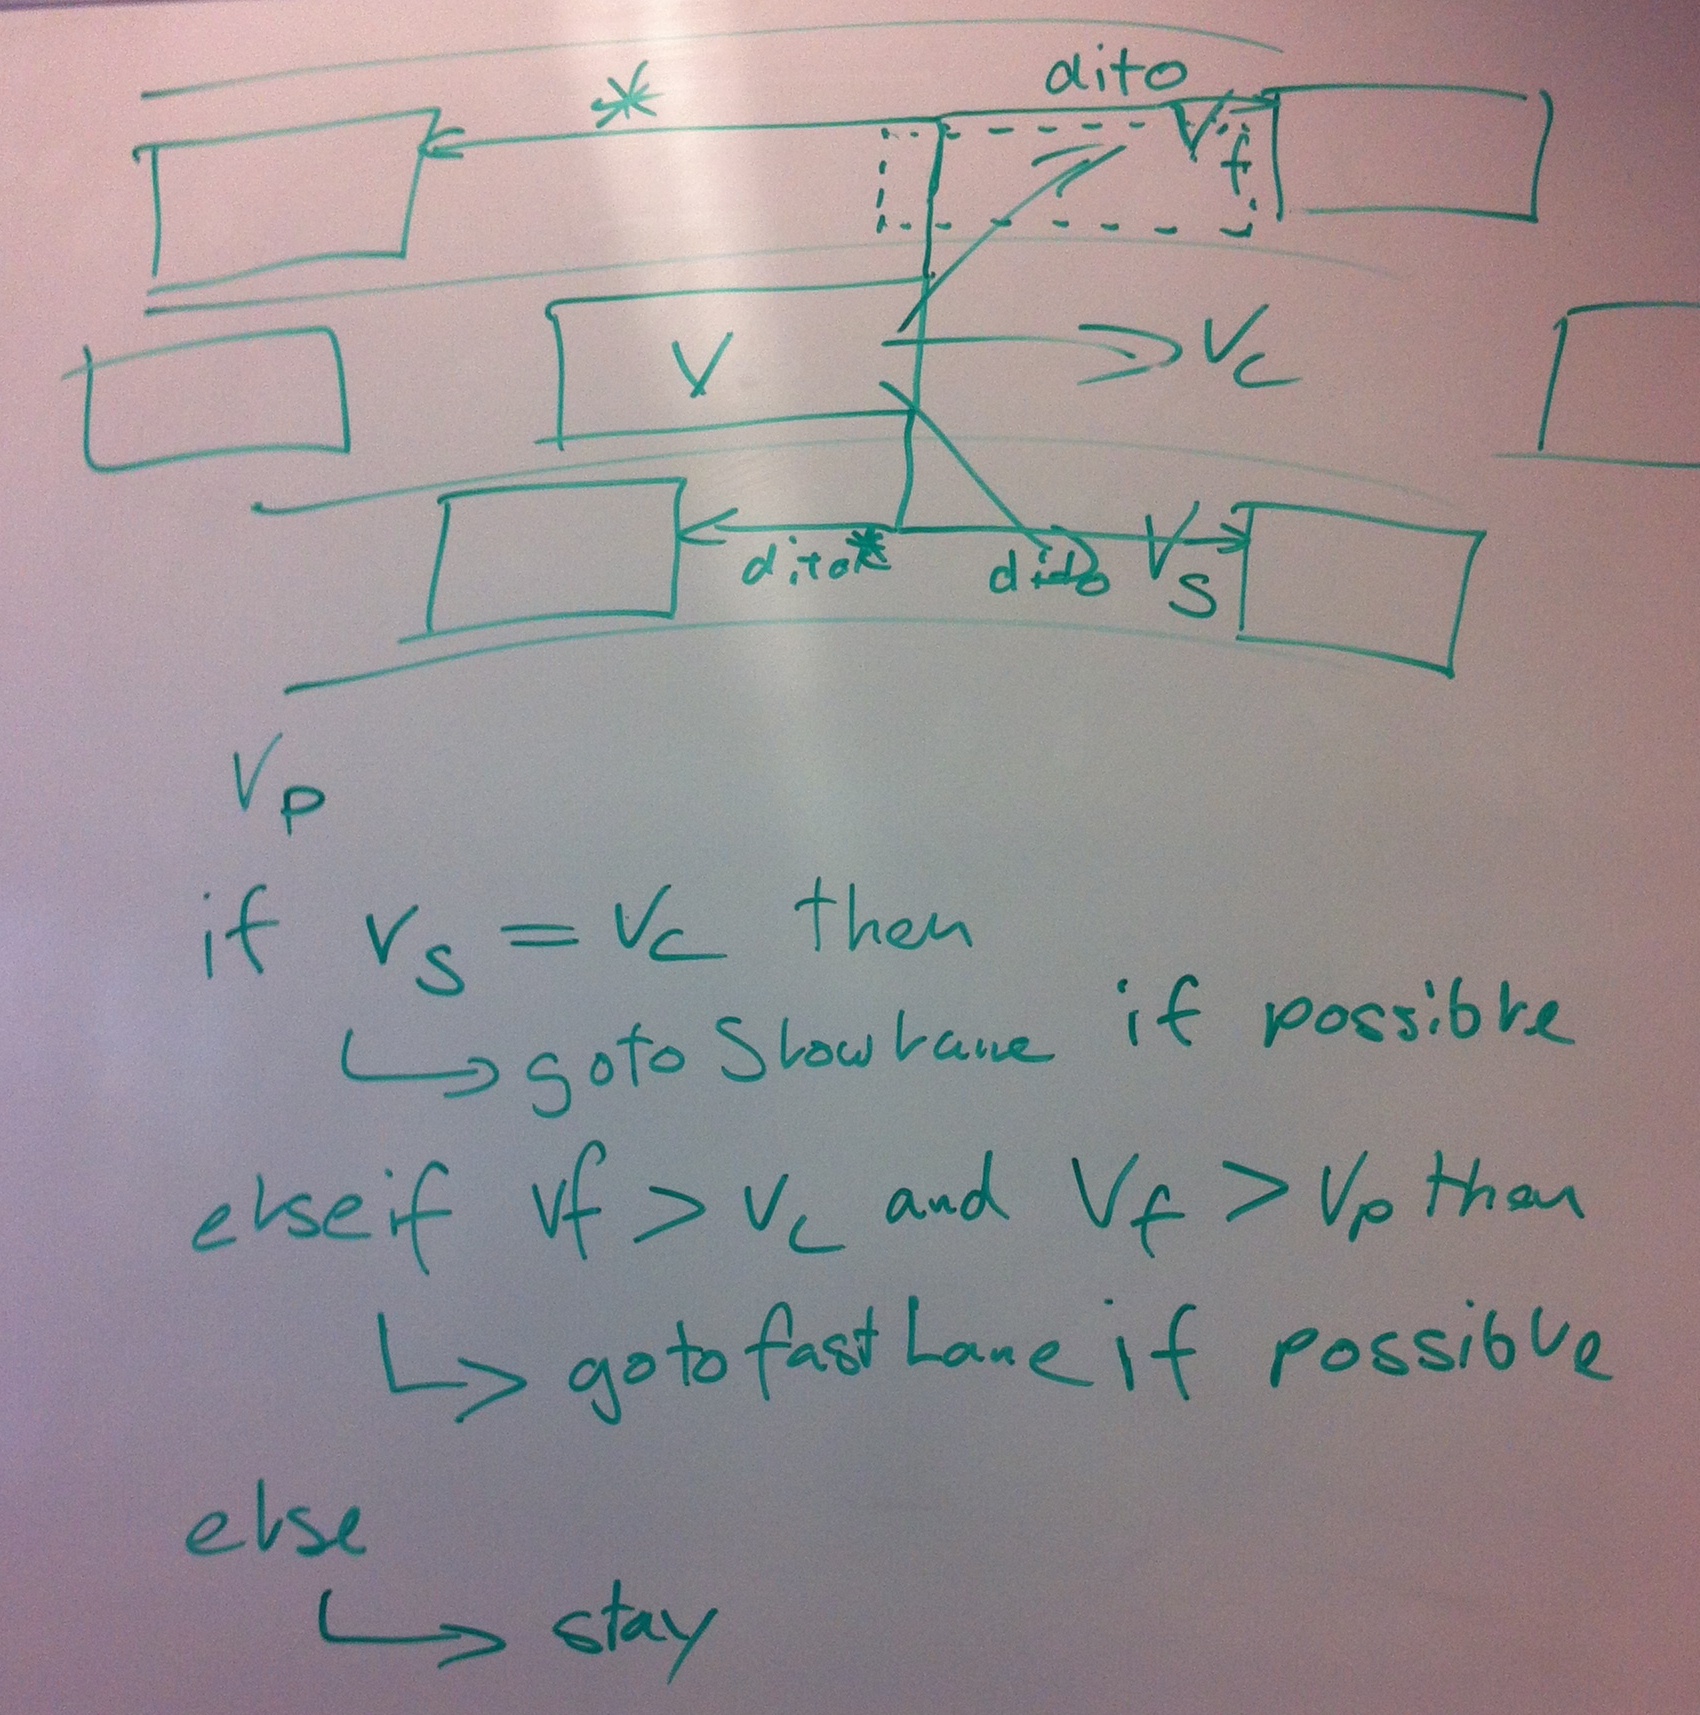 dito
*
Vf
V
Vc
dito*
dito
Vs
Vp
if Vs = Vc then
goto Slow Lane if possible
else if Vf > Vc and Vf > Vp then
goto fast Lane if possible
else
stay